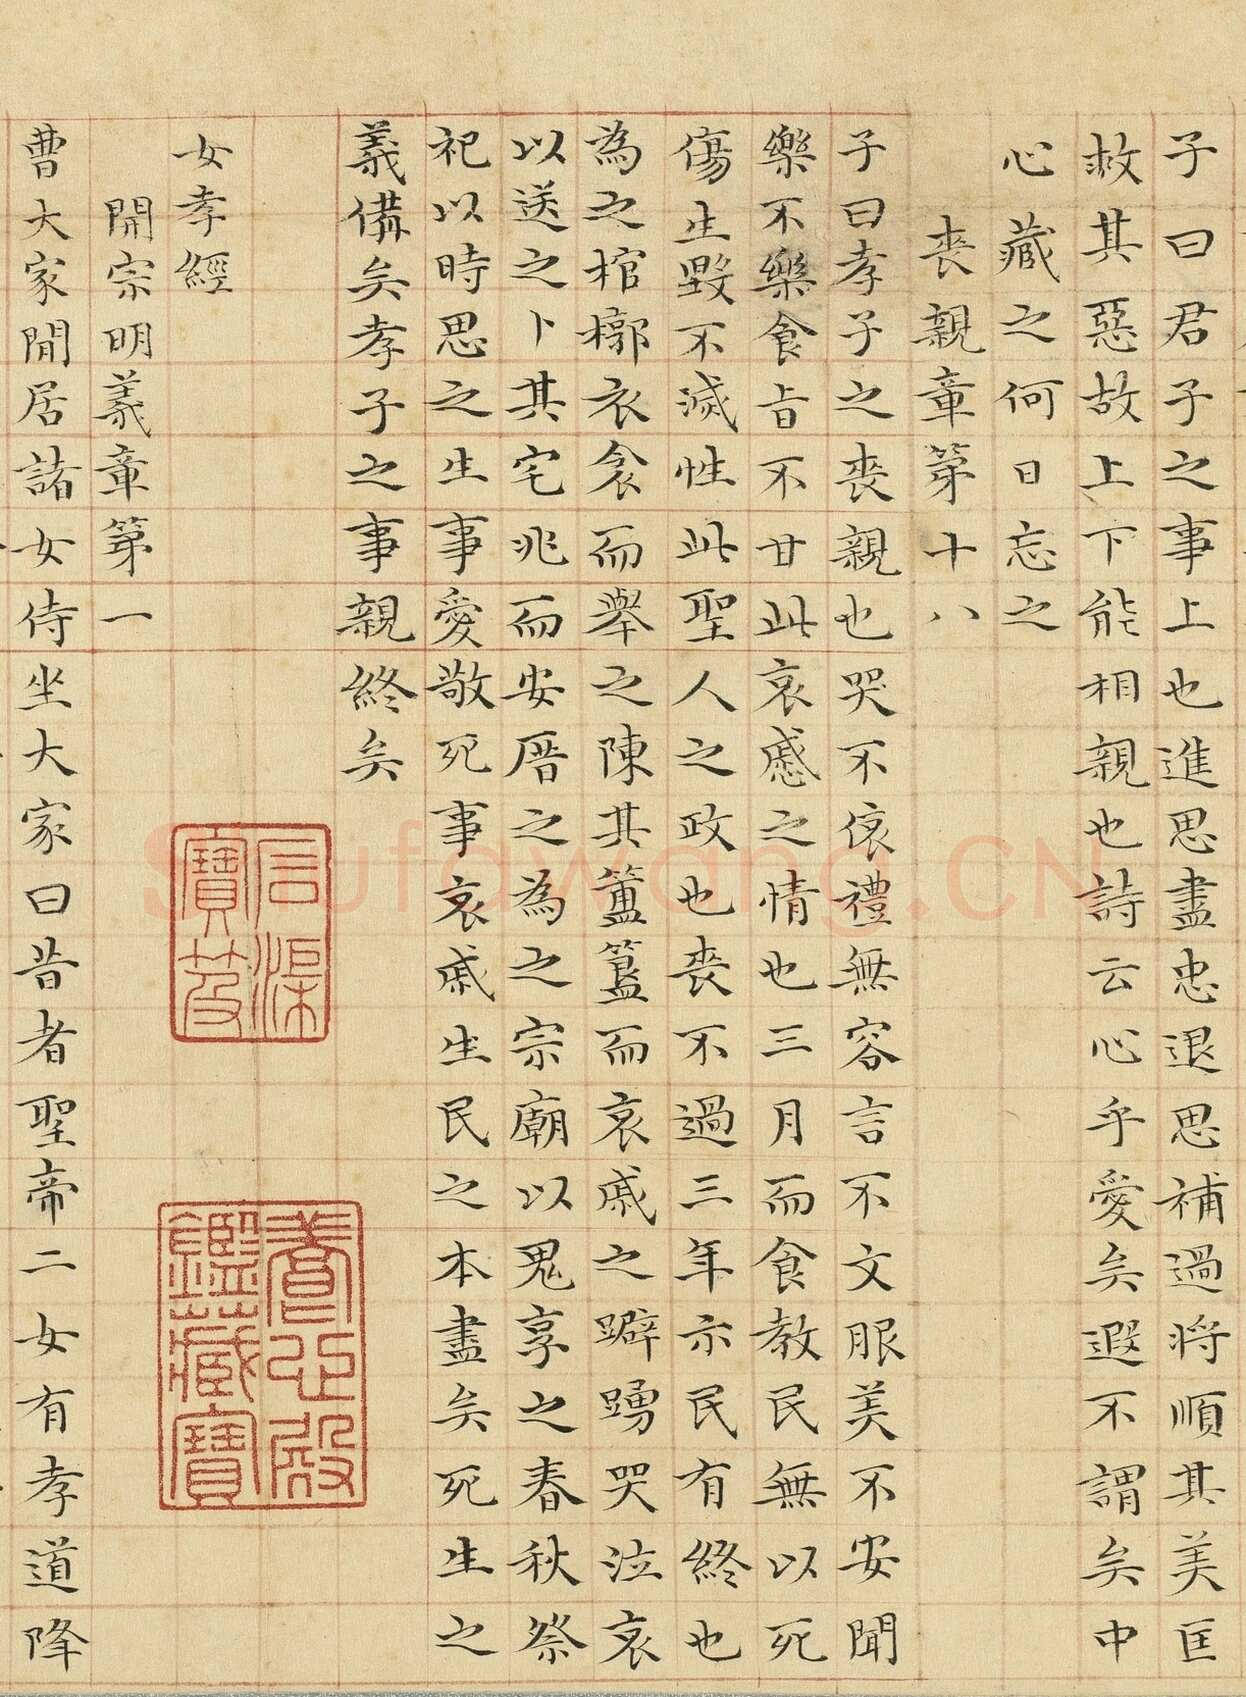 子曰君子之事上也進思盡忠退思補過將順其美匡
救其惡故上下能相親也詩云心乎愛矣遐不謂矣中
心藏之何日忘之
喪親章第十八
子曰孝子之喪親也哭不偯禮無容言不文服美不安聞
樂不樂食旨不甘此哀慼之情也三月而食教民無以死
傷生毀不滅性此聖人之政也喪不過三年示民有終也
為之棺槨衣衾而舉之陳其簠簋而哀慼之躃踴哭泣哀
以送之卜其宅兆而安厝之為之宗廟以鬼享之春秋祭
祀以時思之生事愛敬死事哀慼生民之本盡矣死生之
義備矣孝子之事親終矣
女孝經
開宗明義章第一
曹大家閒居諸女侍坐大家曰昔者聖帝二女有孝道降
石渠
寶笈
養心殿
鑑藏寶
Shufawang.CN